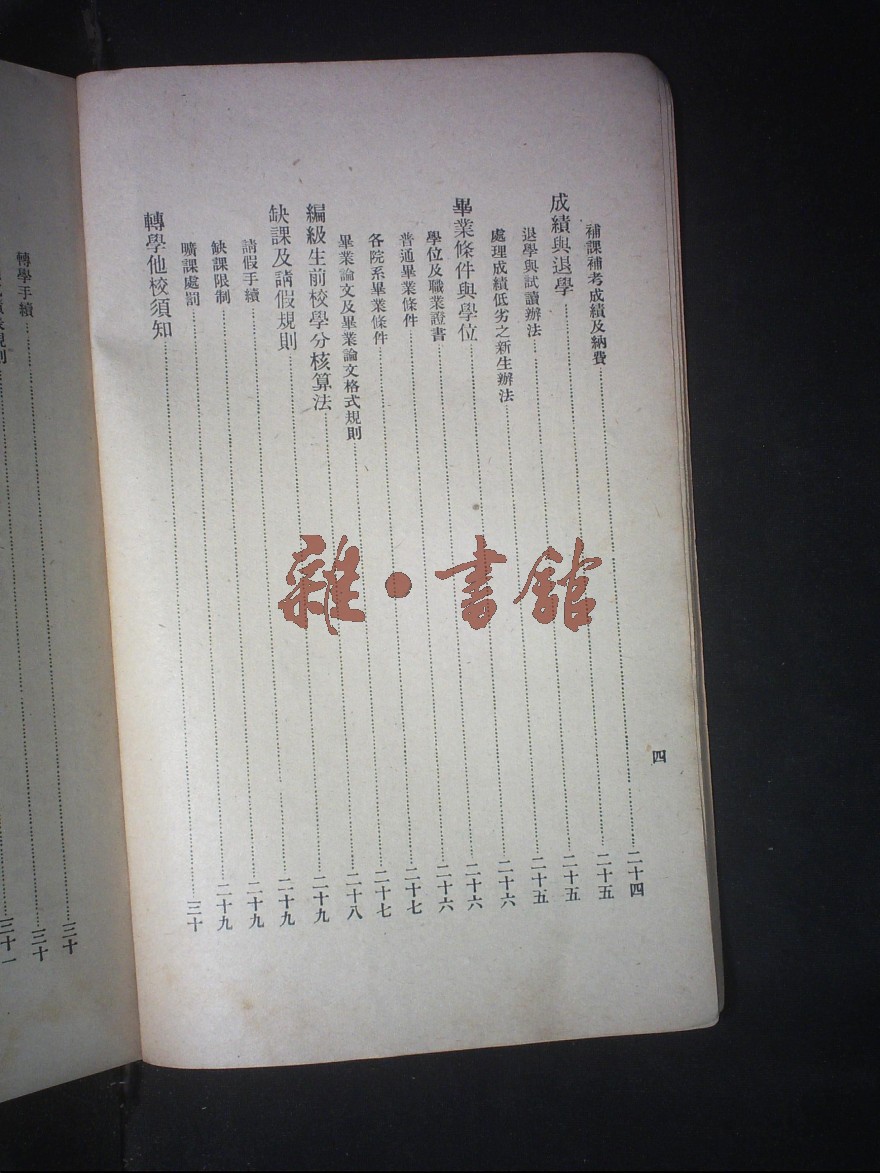 補課補考成績及納費……二十四
成績與退學……二十五
退學與試讀辦法……二十五
處理成績低劣之新生辦法……二十五
畢業條件與學位……二十六
學位及職業證書……二十六
普通畢業條件……二十六
各院系畢業條件……二十七
畢業論文及畢業論文格式規則……二十七
編級生前校學分核算法……二十八
缺課及請假規則……二十九
請假手續……二十九
缺課限制……二十九
曠課處罰……二十九
轉學他校須知……三十
四
轉學手續……三十
規則……三十
三十一
雜·書館